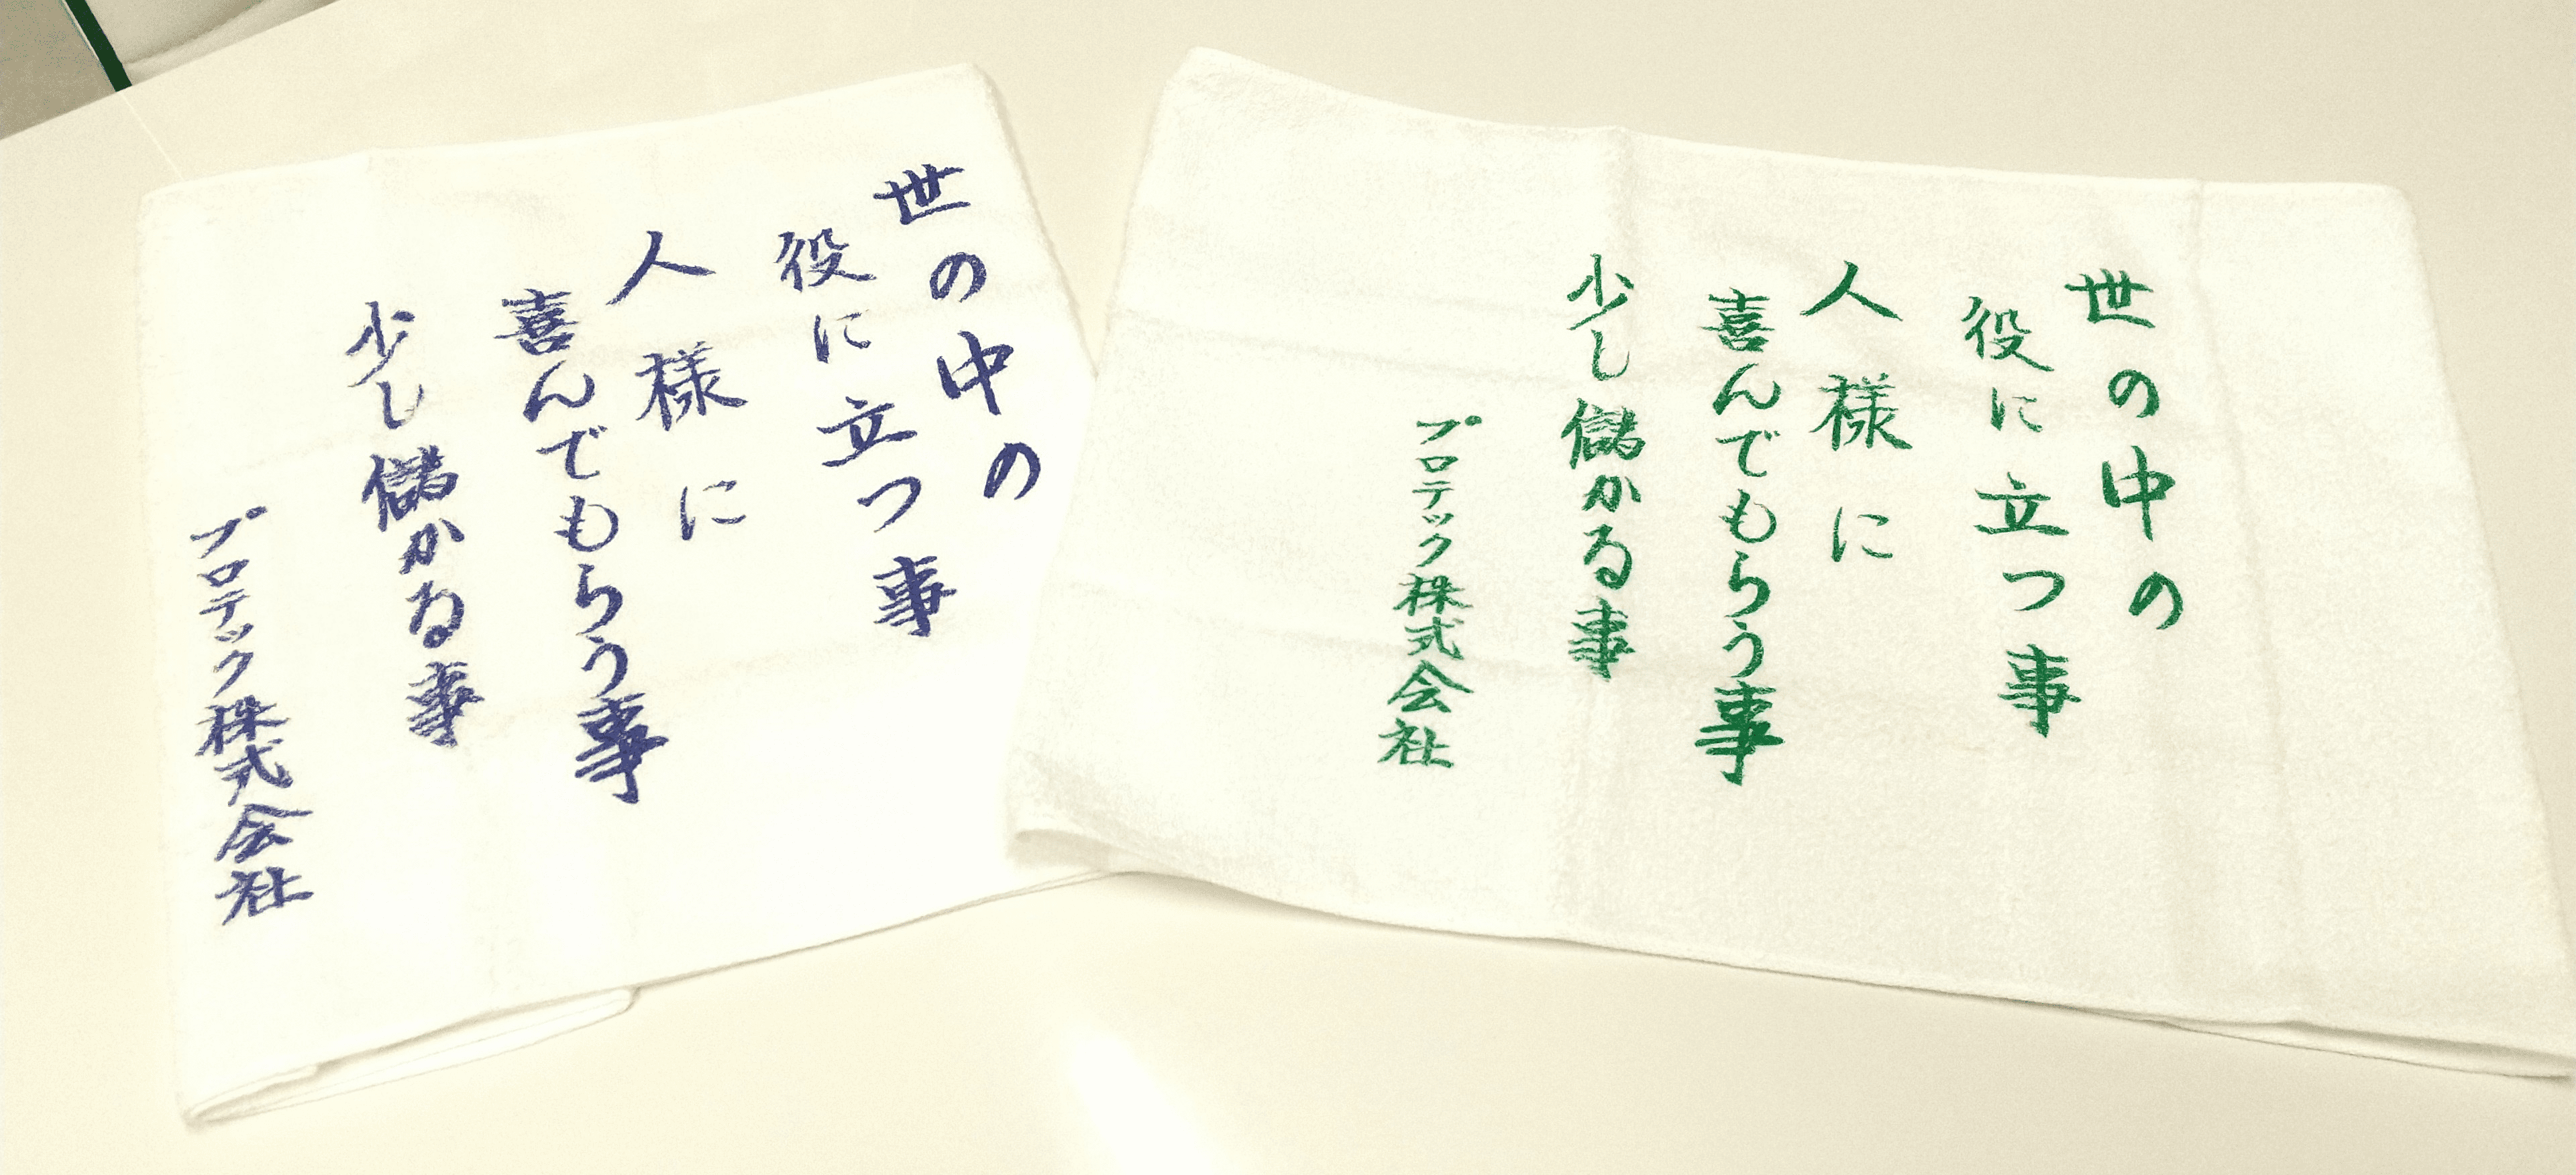 世の中の
役に立つ事
人様に
喜んでもらう事
少し儲かる事
プロテック株式会社
世の中の
役に立つ事
人様に
喜んでもらう事
少し儲かる事
プロテック株式会社